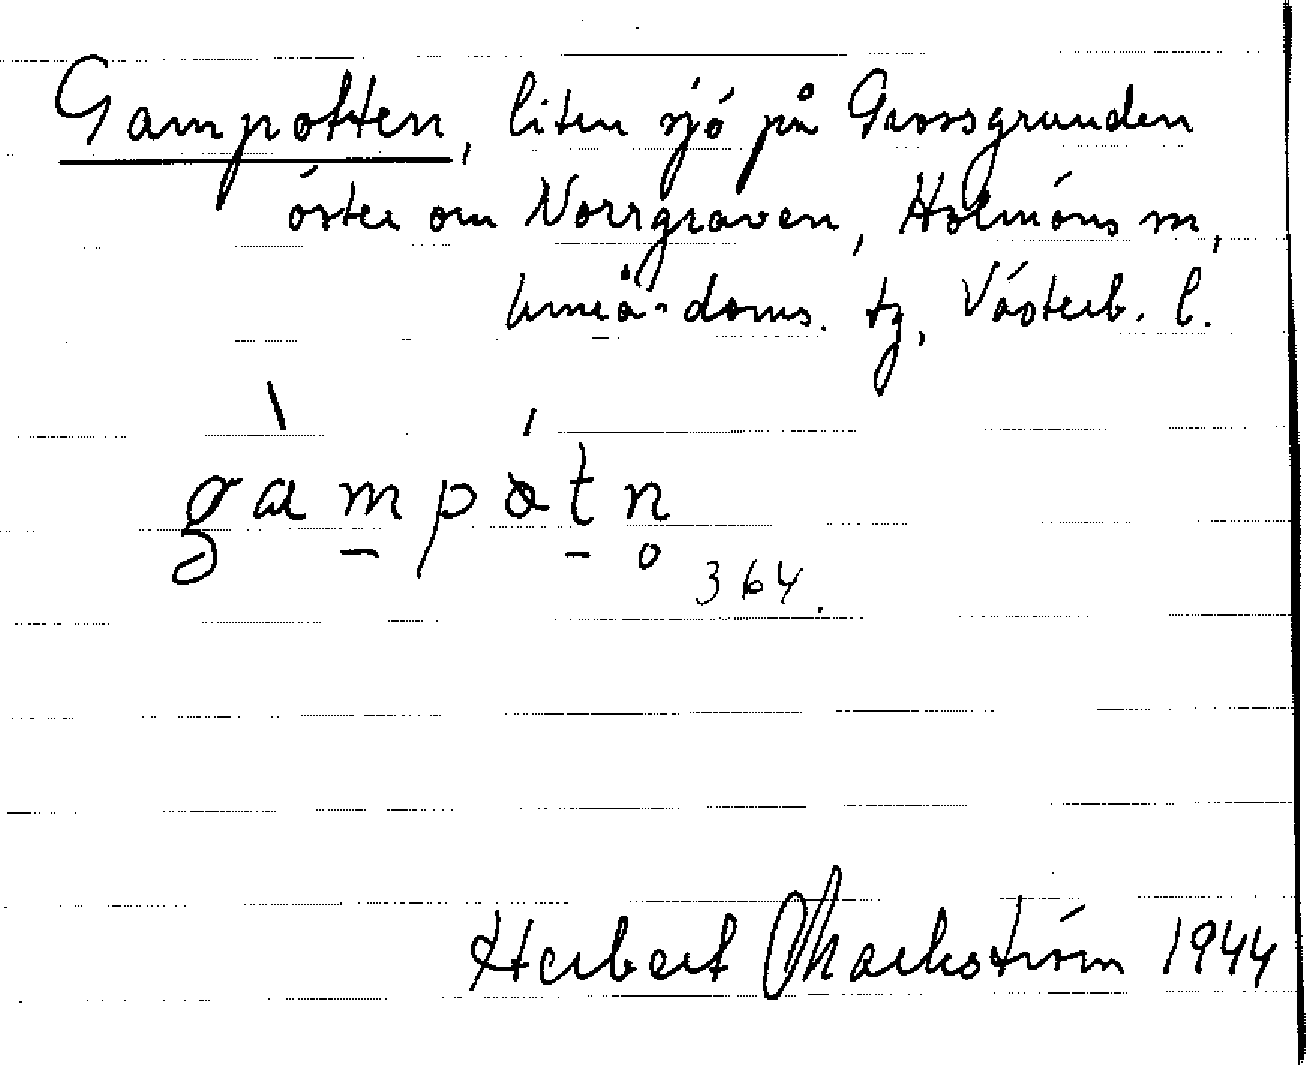 Gampotten, liten sjö på Grossgrunden
öster om Norrgraven, Holmöns sn,
Umeå-doms. tg, Västerb. l.
gàmpátn 364.
Herbert Markström 1944